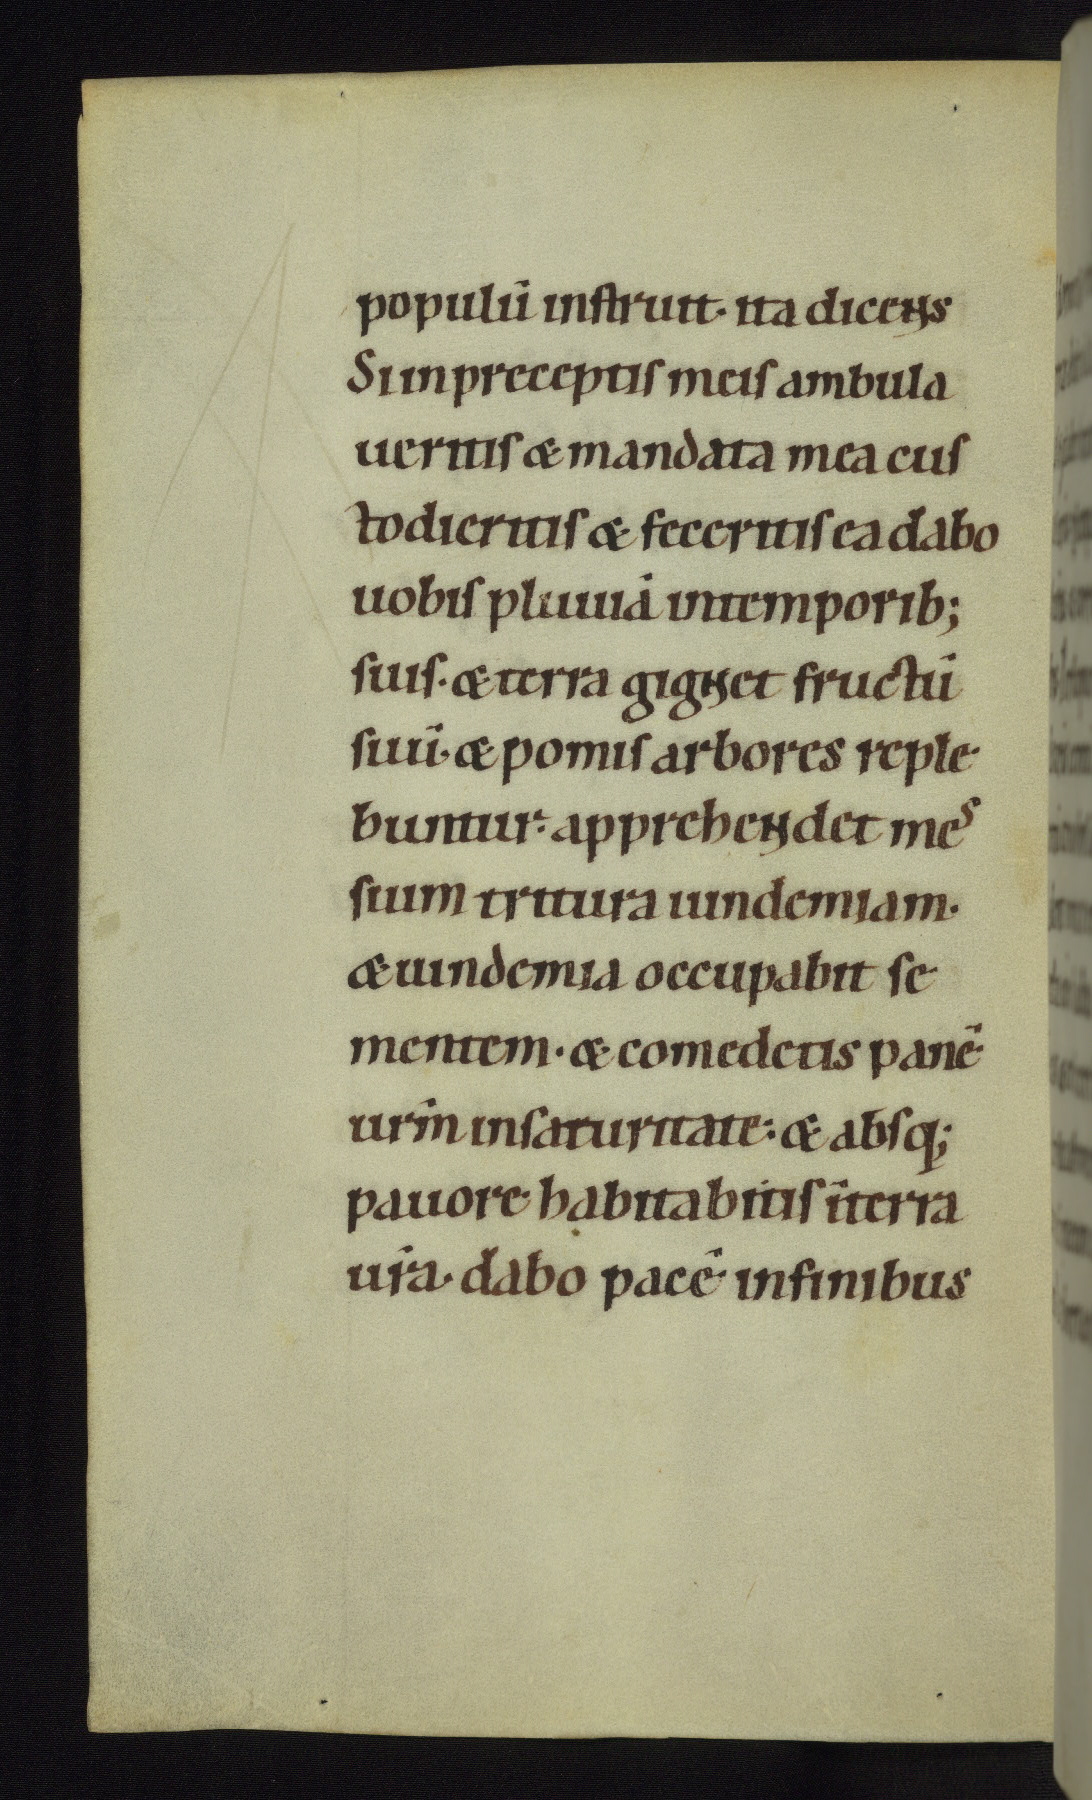 populū instruit· ita dicens
Si in preceptis meis ambula
ueritis & mandata mea cus
todieritis & feceritis ea dabo
uobis pluuiā in temporib;
suis· & terra gignet fructū
suū· & pomis arbores reple
buntur· apprehendet mes
sium tritura uindemiam·
& uindemia occupabit se
mentem· & comedetis panē
urm̄ in saturitate: & absq;
pauore habitabitis ī terra
ur̄a· dabo pacē in finibus